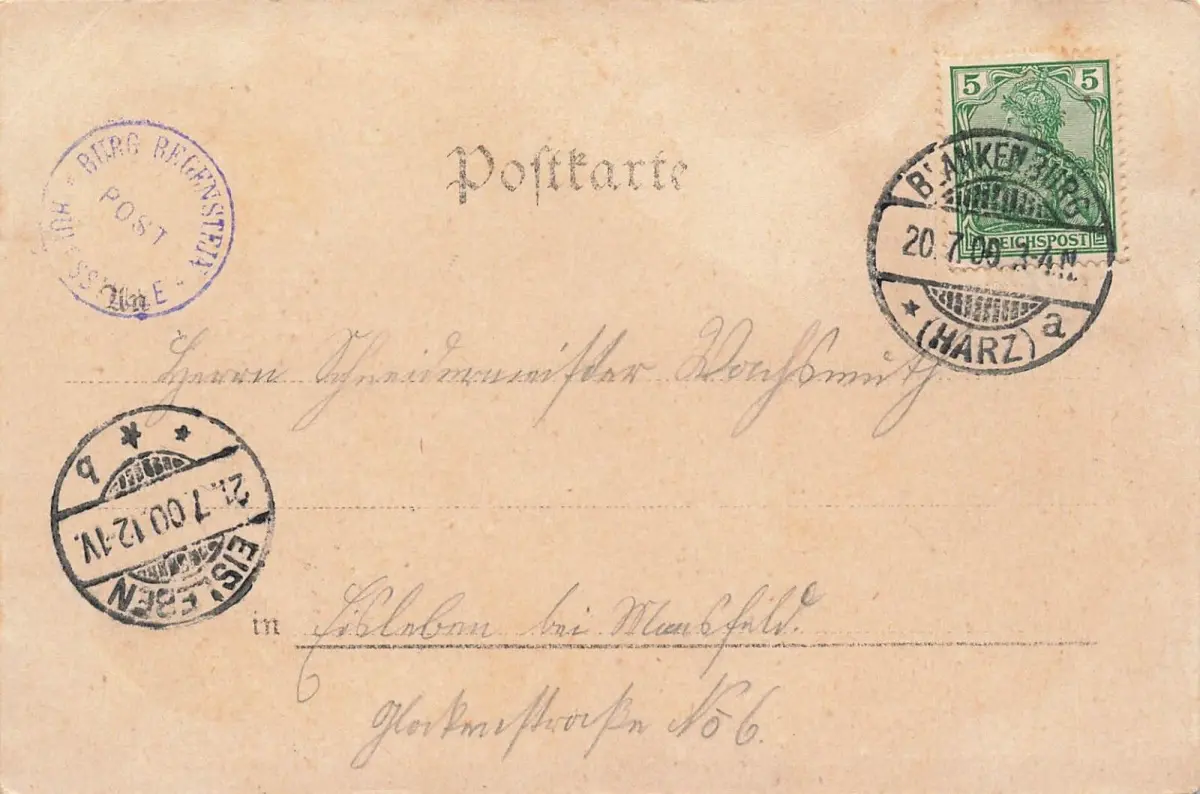 5 5
REICHSPOST
BLANKENBURG
20.7.00 3-4N.
* (HARZ) a
BURG REGENSTEIN
POST
Postkarte
An
Herrn Schneidermeister Wachsmuth
b * *
21.7.00.12-1V.
EISLEBEN
in Eisleben bei Mansfeld.
Glockenstraße No 6.